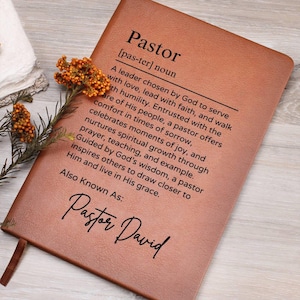 Pastor
[pas-ter] noun
A leader chosen by God to serve
with love, lead with faith, and walk
with humility. Entrusted with the
e of His people, a pastor offers
comfort in times of sorrow,
celebrates moments of joy, and
nurtures spiritual growth through
prayer, teaching, and example.
Guided by God's wisdom, a pastor
inspires others to draw closer to
Him and live in His grace.
Also Known As:
Pastor David